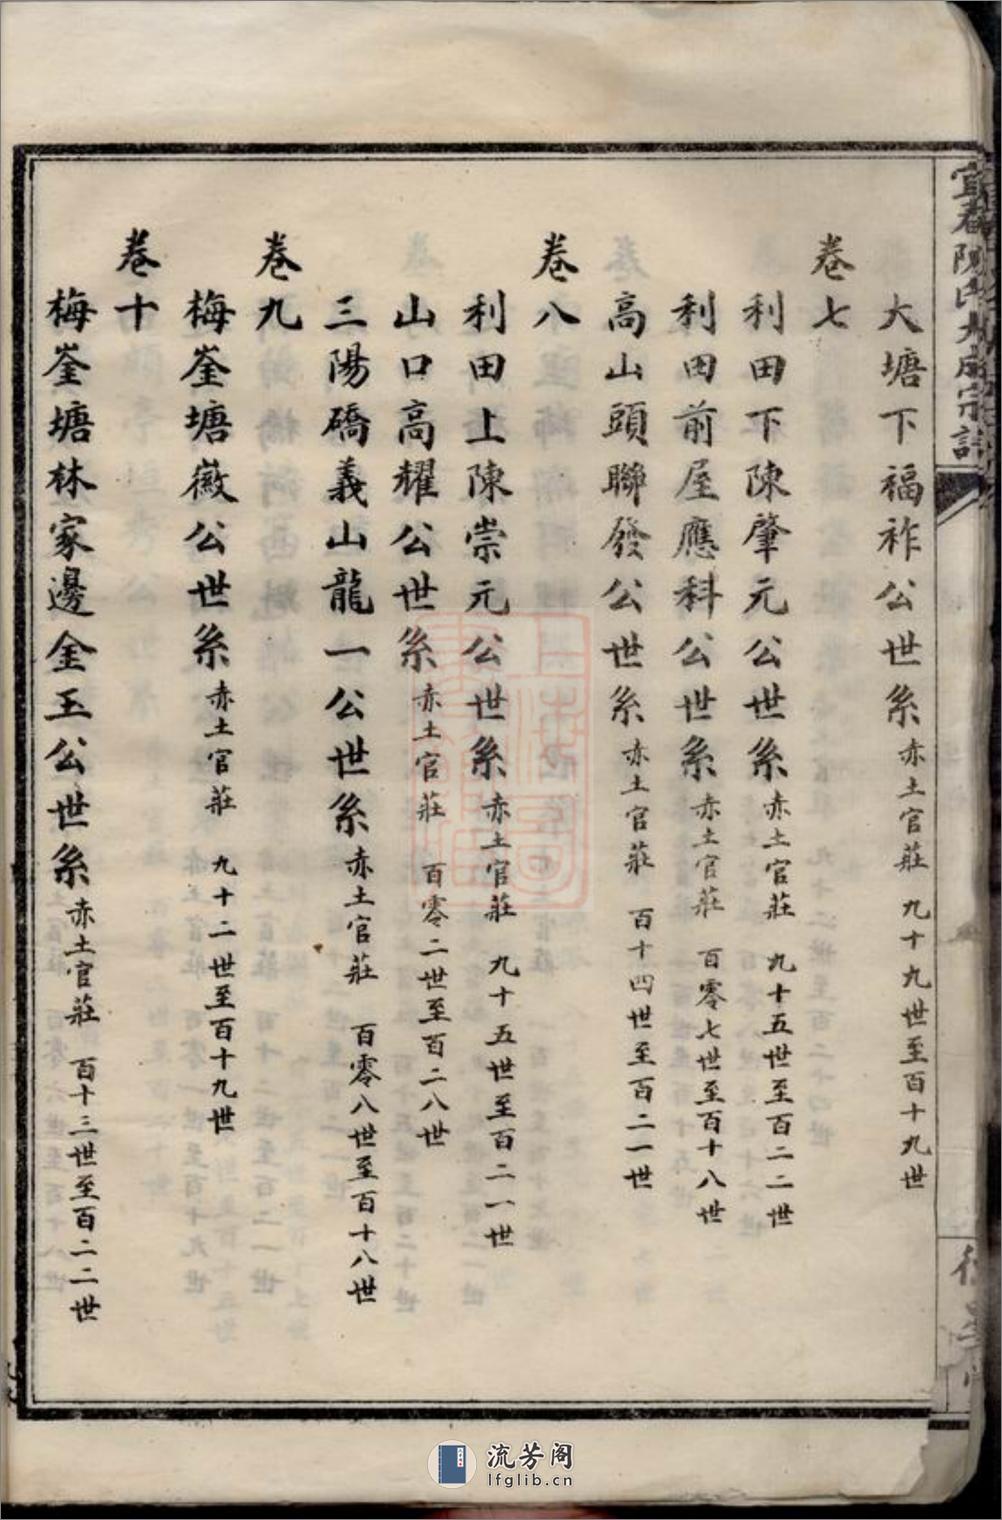 宜春陳氏大成宗譜
大塘下福祚公世系 赤土官莊 九十九世至百十九世
卷七
利田下陳肇元公世系 赤土官莊 九十五世至百二二世
利田前屋應科公世系 赤土官莊 百零七世至百十八世
高山頭聯發公世系 赤土官莊 百十四世至百二一世
卷八
利田上陳崇元公世系 赤土官莊 九十五世至百二一世
山口高耀公世系 赤土官莊 百零二世至百二八世
三陽礄義山龍一公世系 赤土官莊 百零八世至百十八世
卷九
梅崟塘薇公世系 赤土官莊 九十二世至百十九世
卷十
梅崟塘林家邊金玉公世系 赤土官莊 百十三世至百二二世
流芳阁
lfglib.cn